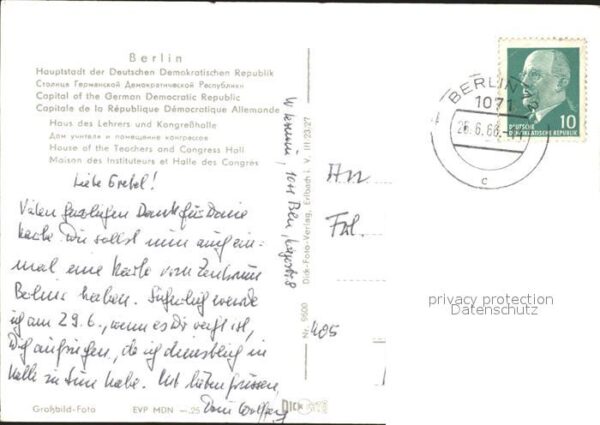 Berlin
Hauptstadt der Deutschen Demokratischen Republik
Столица Германской Демократической Республики
Capital of the German Democratic Republic
Capitale de la République Démocratique Allemande
Haus des Lehrers und Kongreßhalle
Дом учителя и помещение конгрессов
House of the Teachers and Congress Hall
Maison des Instituteurs et Halle des Congrès
Liebe!
Vielen herzlichen Dank für Deine
Karte. Du sollst nun auch ein=
mal eine Karte vom Zentrum
Berlins haben. werde
ich am 29.6., wenn es Dir recht ist,
Dich aufsuchen, da ich dienstlich in
Halle zu tun habe. Mit lieben Grüssen
Dein Wolfgang
Großbild-Foto EVP MDN —.25 DICK
Nr. 9500 Dick-Foto-Verlag, Erlbach i. V. III 23 27
An
Frl.
405
BERLIN
1071
25.6.66
c
10
DEUTSCHE
DEMOKRATISCHE REPUBLIK
privacy protection
Datenschutz